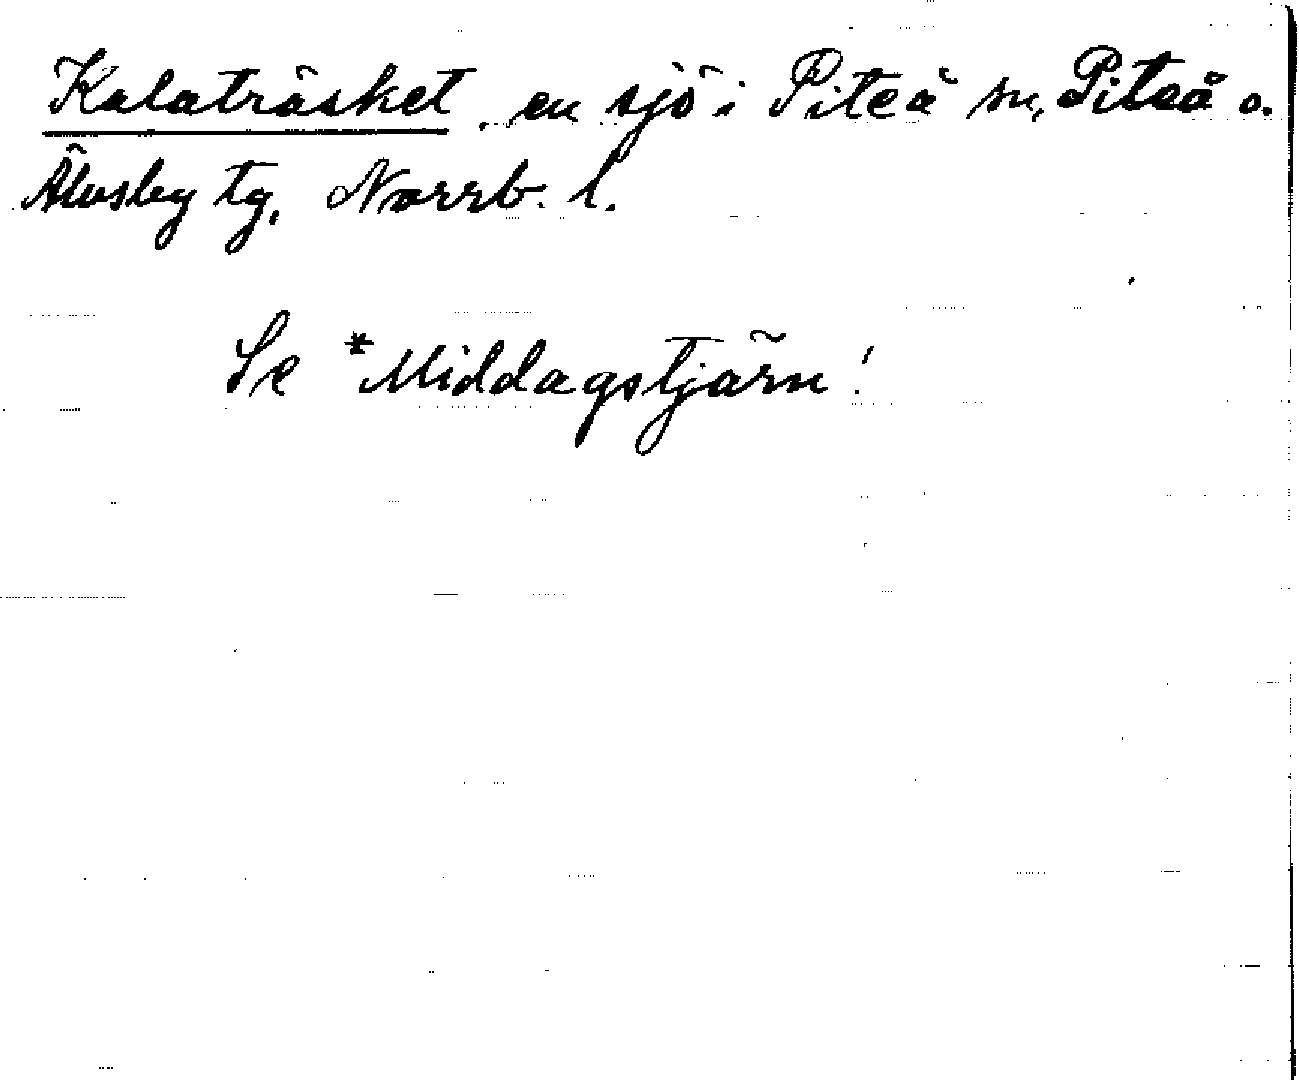 Kalaträsket, en sjö i Piteå sn, Piteå o.
Älvsby tg, Norrb. l.
Se *Middagstjärn!